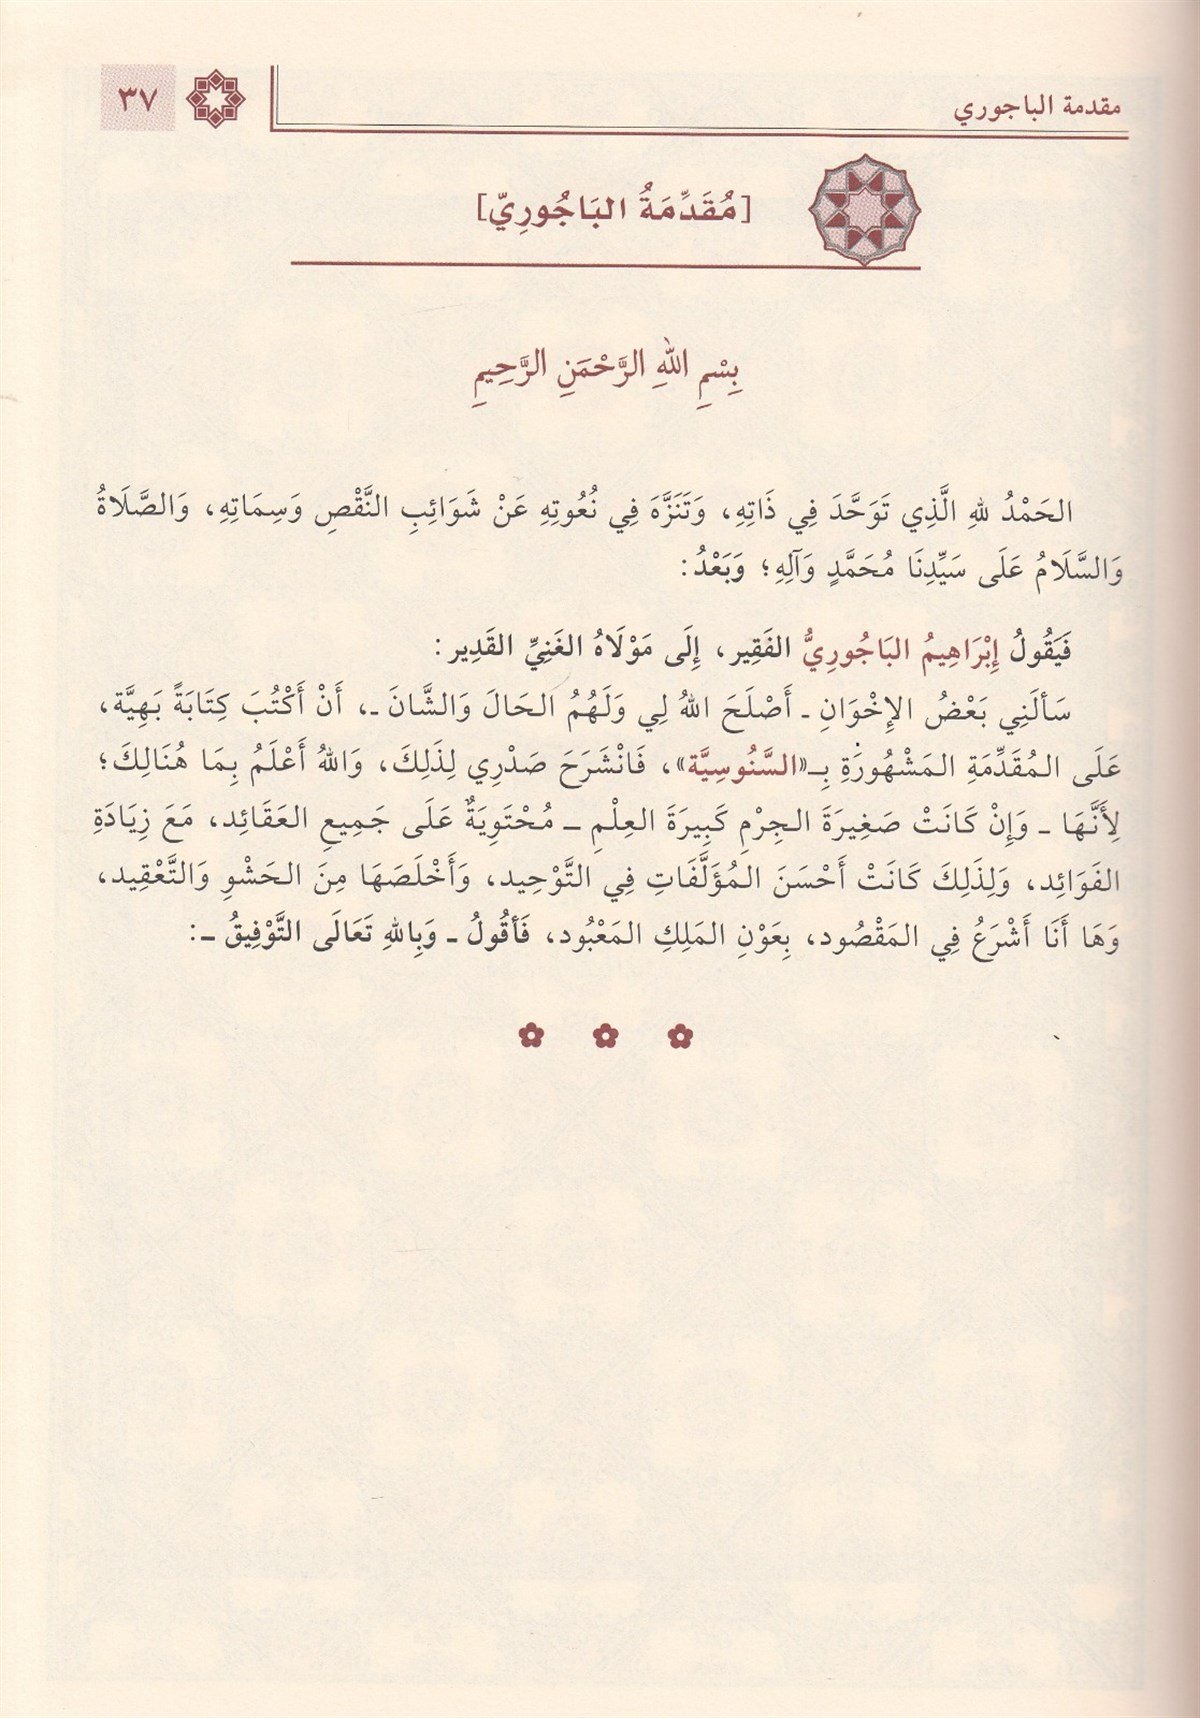 مقدمة الباجوري
٣٧
[مُقَدِّمَةُ البَاجُورِيّ]
بِسْمِ اللهِ الرَّحْمَنِ الرَّحِيمِ
الحَمْدُ للهِ الَّذِي تَوَحَّدَ فِي ذَاتِهِ، وَتَنَزَّهَ فِي نُعُوتِهِ عَنْ شَوَائِبِ النَّقْصِ وَسِمَاتِهِ، وَالصَّلَاةُ
وَالسَّلَامُ عَلَى سَيِّدِنَا مُحَمَّدٍ وَآلِهِ؛ وَبَعْدُ:
فَيَقُولُ إِبْرَاهِيمُ البَاجُورِيُّ الفَقِير، إِلَى مَوْلَاهُ الغَنِيِّ القَدِير:
سَألَنِي بَعْضُ الإِخْوَانِ ـ أَصْلَحَ اللهُ لِي وَلَهُمُ الحَالَ وَالشَّانَ ـ، أَنْ أَكْتُبَ كِتَابَةً بَهِيَّة،
عَلَى المُقَدِّمَةِ المَشْهُورَةِ بِـ«السَّنُوسِيَّة»، فَانْشَرَحَ صَدْرِي لِذَلِكَ، وَاللهُ أَعْلَمُ بِمَا هُنَالِكَ؛
لِأَنَّهَا ـ وَإِنْ كَانَتْ صَغِيرَةَ الجِرْمِ كَبِيرَةَ العِلْمِ ـ مُحْتَوِيَةٌ عَلَى جَمِيعِ العَقَائِد، مَعَ زِيَادَةِ
الفَوَائِد، وَلِذَلِكَ كَانَتْ أَحْسَنَ المُؤَلَّفَاتِ فِي التَّوْحِيد، وَأَخْلَصَهَا مِنَ الحَشْوِ وَالتَّعْقِيد،
وَهَا أَنَا أَشْرَعُ فِي المَقْصُود، بِعَوْنِ المَلِكِ المَعْبُود، فَأقُولُ ـ وَبِاللهِ تَعَالَى التَّوْفِيقُ ـ: